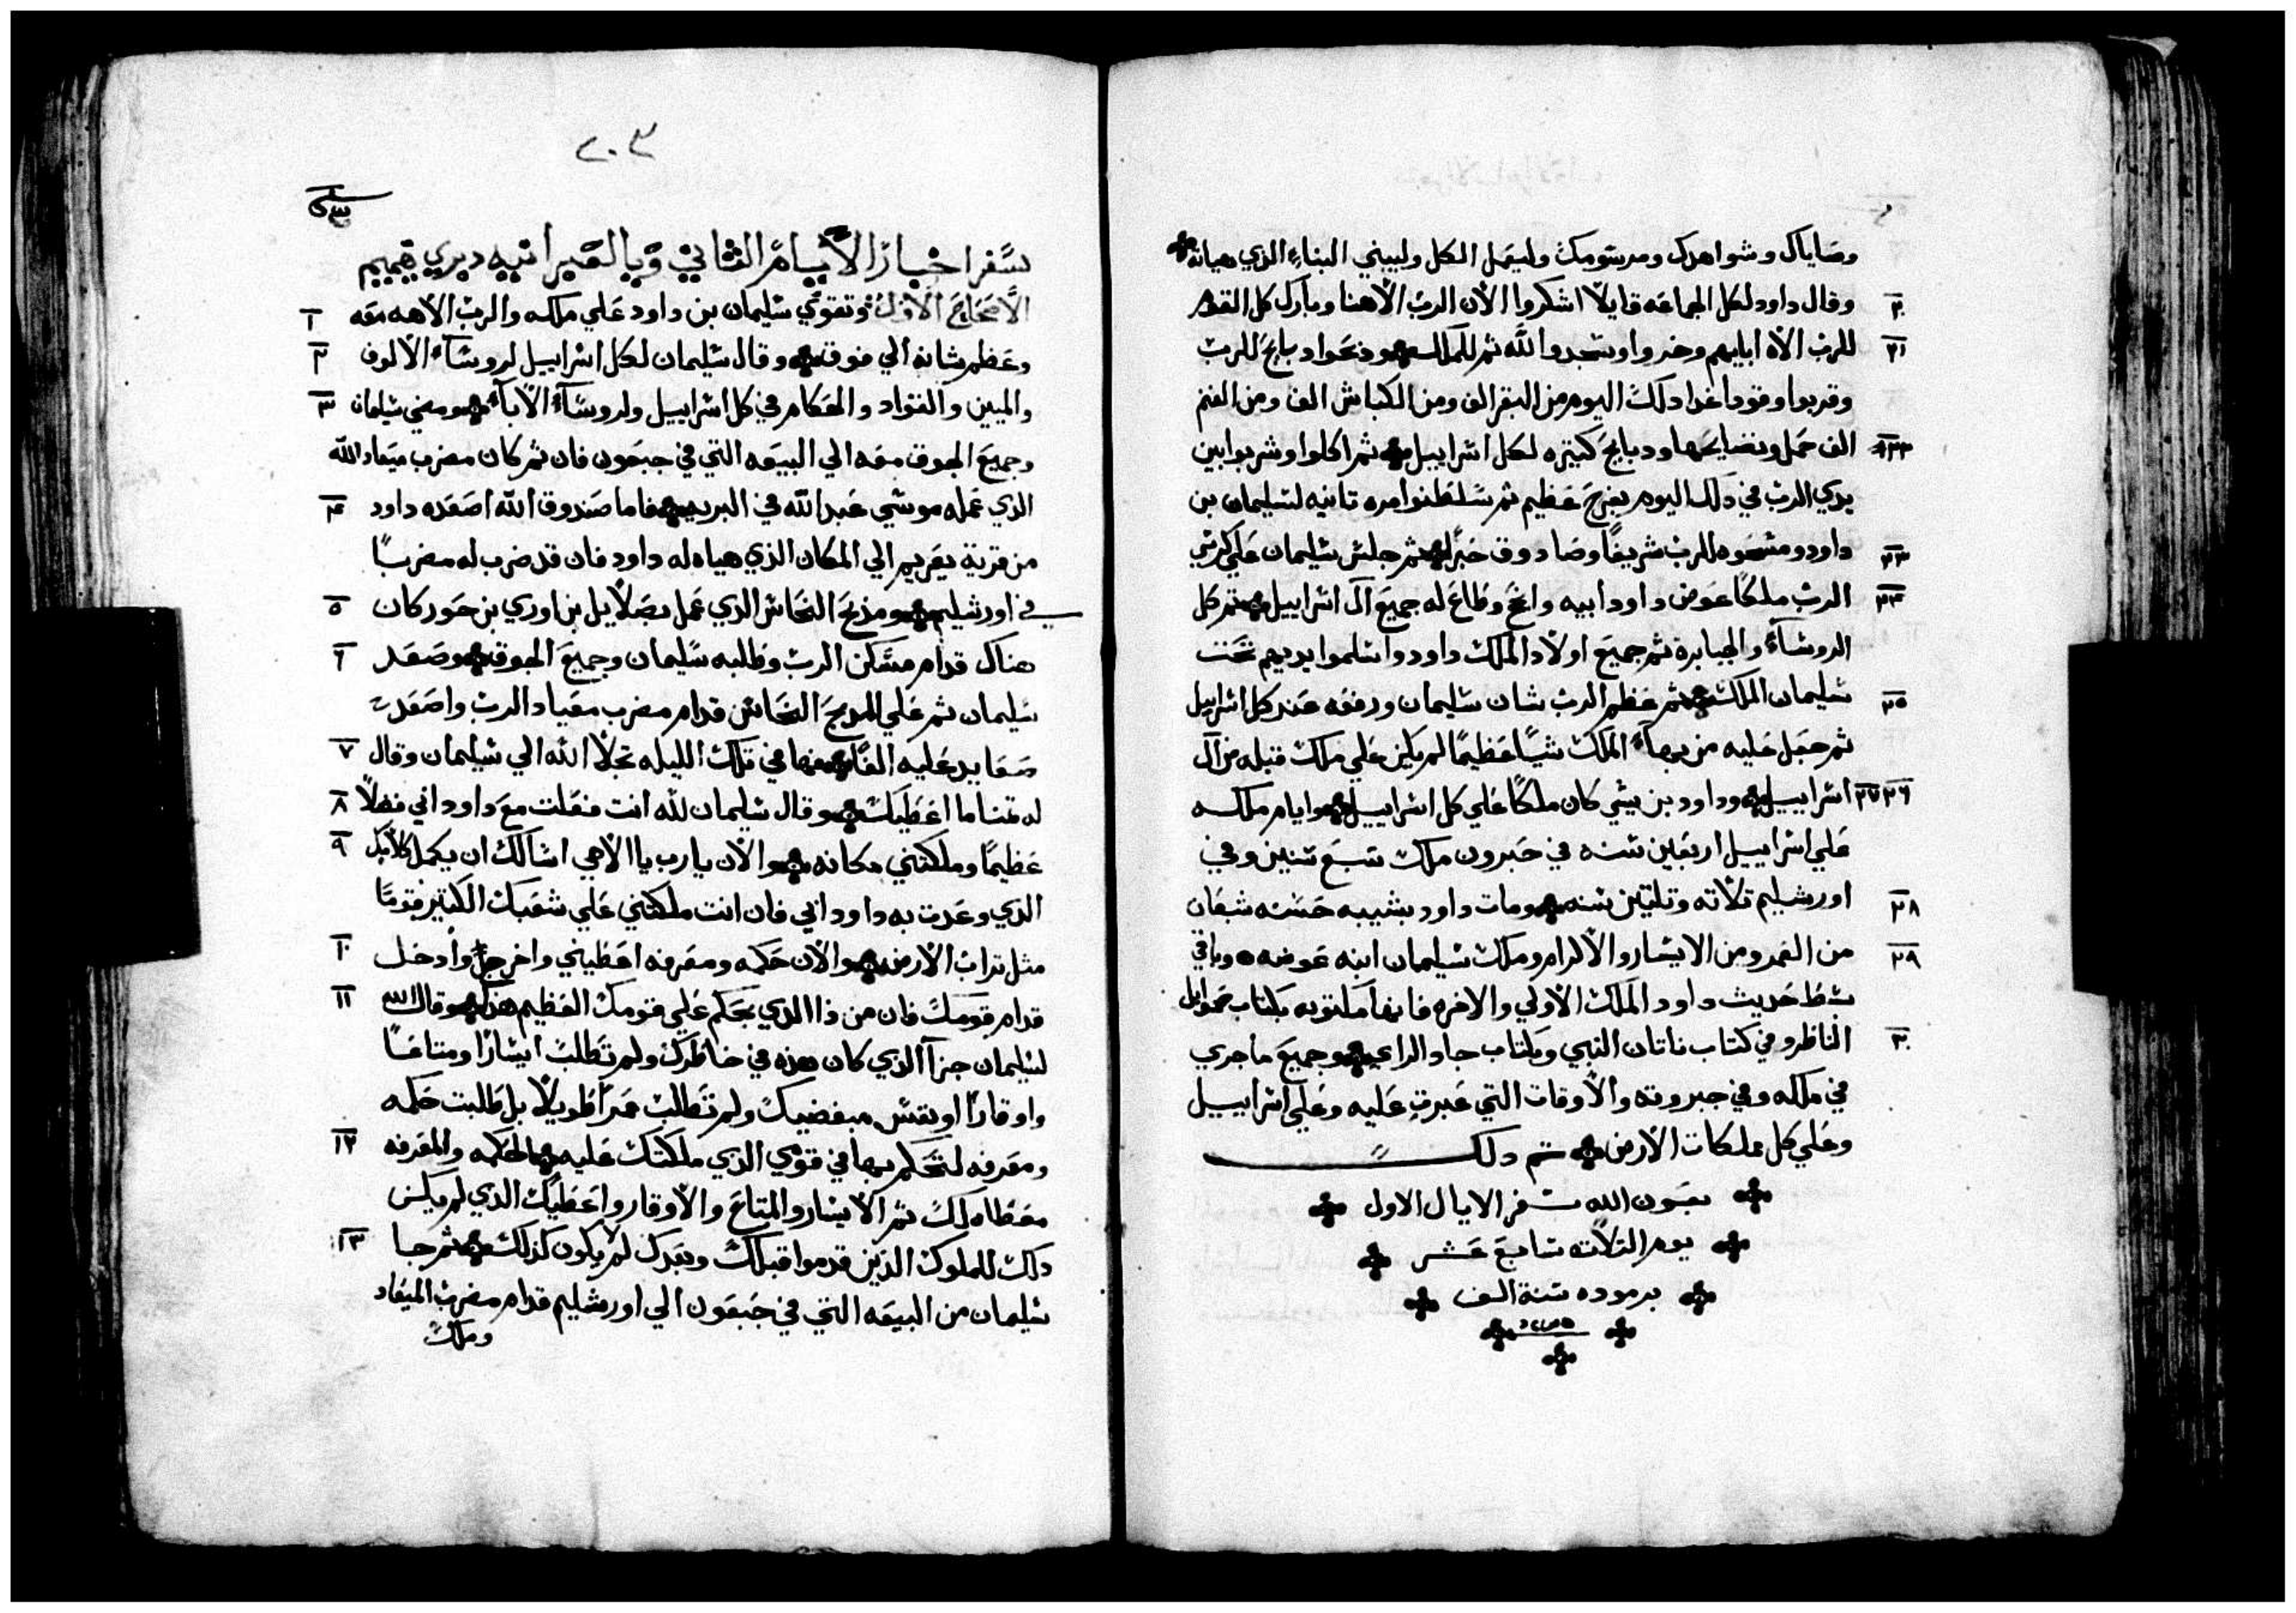 وصاياك وشواهدك ومرسومك وليعمل الكل وليبني البناء الذي هياته
٢٠ وقال داود لكل الجماعه قايلاً اشكروا الان الرب الاهنا وبارك كل القهر
٢١ للرب الاه ابايهم وخروا وسجدوا لله ثم للملك وذبحوا دبايح للرب
وقربوا وقودا غدا دلك اليوم من البقر الف ومن الكباش الف ومن الغنم
٢٢ الف حمل ونضايحها ودبايح كتيره لكل اسراييل ثم اكلوا وشربوا بين
يدي الرب في دلك اليوم بفرح عظيم ثم سلطنوا مره تانيه لسليمان بن
٢٣ داود ومسحوه للرب شريفاً وصادوق حبراً ثم جلس سليمان علي كرسي
٢٤ الرب ملكاً عوض داود ابيه وانجح وطاع له جميع ال اسراييل ثم كل
الروسآء والجبابرة ثم جميع اولاد الملك داود واسلموا يديهم تحت
٢٥ سليمان الملك ثم عظم الرب شان سليمان ورفعه عند كل اسراييل
ثم جعل عليه من بهآء الملك شياً عظيماً لم يكن علي ملك قبله من ال
٢٦ ٢٧ اسراييل وداود بن يسي كان ملكاً علي كل اسراييل وايام ملكه
علي اسراييل اربعين سنه في حبرون ملك سبع سنين وفي
٢٨ اورشليم تلاته وتلتين سنه ومات داود بشيبه حسنه شبعان
٢٩ من العمر ومن الايسار والاكرام وملك سليمان ابنه عوضه وباقي
شط حديث داود الملك الاولي والاخره فانها مكتوبه بكتاب صموايل
٣٠ الناظر وفي كتاب ناتان النبي وبكتاب جاد الراعي وجميع ما جري
في ملكه وفي جبروته والاوقات التي عبرت عليه وعلي اسراييل
وعلي كل مملكات الارض تم دلك
بعون الله سفر الايال الاول
يوم التلاته سابع عشر
برموده سنة الف
٢٠٣
سفر اخبار الأيام الثاني وبالعبرانيه دبري هيميم
١ الاصحاح الاول وتقوي سليمان بن داود علي ملكه والرب الاهه معه
٢ وعظم شانه الي فوق وقال سليمان لكل اسراييل لروسآء الالوف
٣ والميين والقواد والحكام في كل اسراييل ولروسآء الابآء ومضي سليمان
وجميع الجوق معه الي البيعه التي في جبعون فان ثم كان مضرب ميعاد الله
٤ الدي عمله موسي عبد الله في البريه فاما صندوق الله اصعده داود
من قرية يعريم الي المكان الذي هياه له داود فان قد ضرب له مضرباً
٥ في اورشليم ومذبح النحاس الدي عمل بصلاييل بن اوري بن حور كان
٦ هناك قدام مسكن الرب وطلبه سليمان وجميع الجوق وصعد
سليمان ثم علي المدبح النحاس قدام مضرب معياد الرب واصعد
٧ صعايد عليه الفاً فها في تلك الليله تجلا الله الي سليمان وقال
٨ له تمنا ما اعطيك وقال سليمان لله انت فعلت مع داود ابي فضلاً
٩ عظيماً وملكتني مكانه والان يارب يا الاهي اسالك ان يكمل كلامك
الذي وعدت به داود ابي فان انت ملكتني علي شعبك الكتير قوماً
١٠ مثل تراب الارض والان حكمه ومعرفه اعطيني واخرج وأدخل
١١ قدام قومك فان من ذا الدي يحكم علي قومك العظيم هذا وقال الله
لسليمان جزآ الذي كان هذه في خاطرك ولم تطلب ايساراً ومتاعاً
واوقاراً او نفس مبغضيك ولم تطلب عمراً طويلاً بل طلبت حكمه
١٢ ومعرفه لتحكم بها في قومي الدي ملكتك عليه الحكمه والمعرفه
معطاه لك ثم الايسار والمتاع والاوقار واعطيك الذي لم يكن
١٣ دلك للملوك الذين قدموا قبلك وبعدك لا يكون كذلك ثم جا
سليمان من البيعه التي في جبعون الي اورشليم قدام مضرب الميعاد
وملك